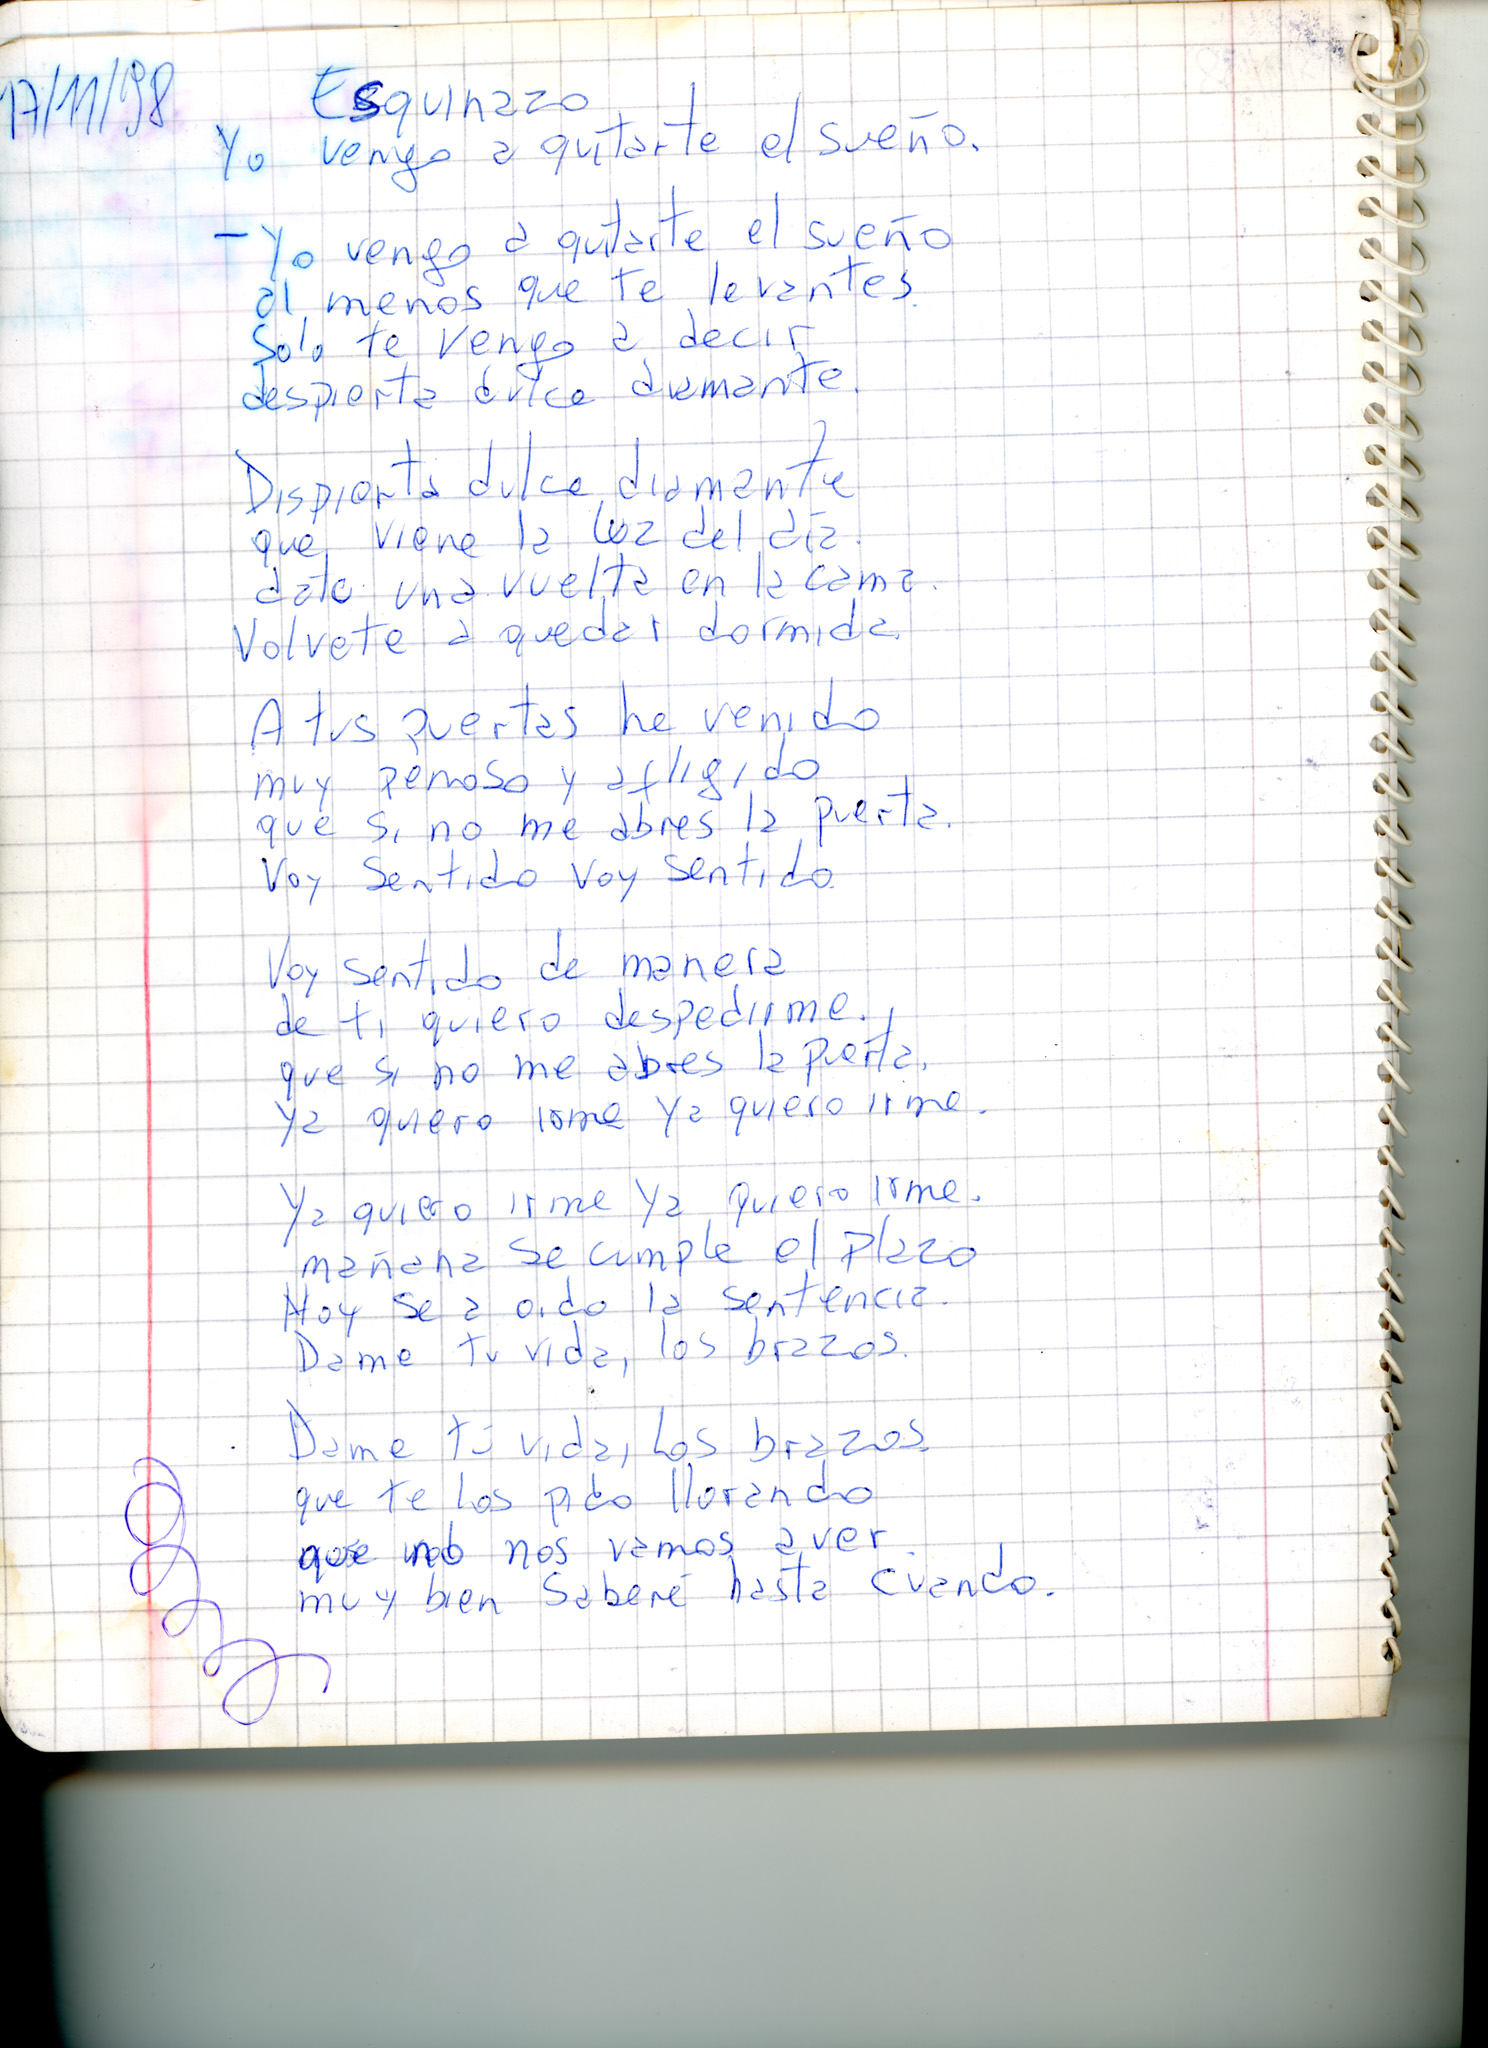 17/11/98
Esquinazo
Yo vengo a quitarte el sueño.
- Yo vengo a quitarte el sueño
al menos que te levantes.
Solo te vengo a decir
despierta dulce diamante.
Dispierta dulce diamante
que viene la luz del día.
date una vuelta en la cama.
Volvete a quedar dormida.
A tus puertas he venido
muy penoso y afligido
que si no me abres la puerta.
Voy sentido voy sentido.
Voy sentido de manera
de ti quiero despedirme.
que si no me abres la puerta.
Ya quiero irme Ya quiero irme.
Ya quiero irme Ya quiero irme.
mañana se cumple el plazo
Hoy se a oido la sentencia.
Dame tu vida, los brazos.
Dame tú vida, los brazos.
que te los pido llorando
que no nos vamos a ver.
muy bien Saberé hasta cuando.